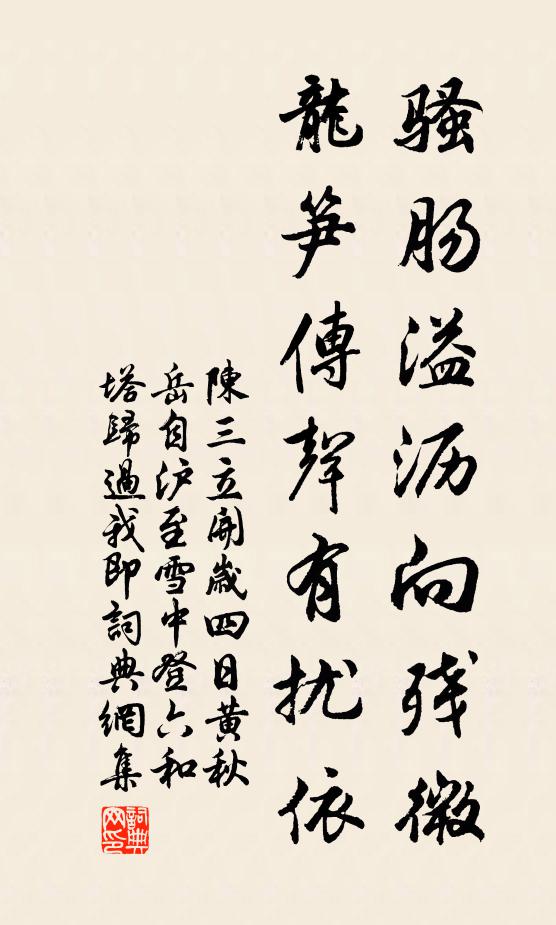 騷腸溢沥向残微
龍笋傳聲有扰依
陳三立開歲四日黄秋
岳自沪至雪中登六和
塔歸過我即詞典網集
詞典网印